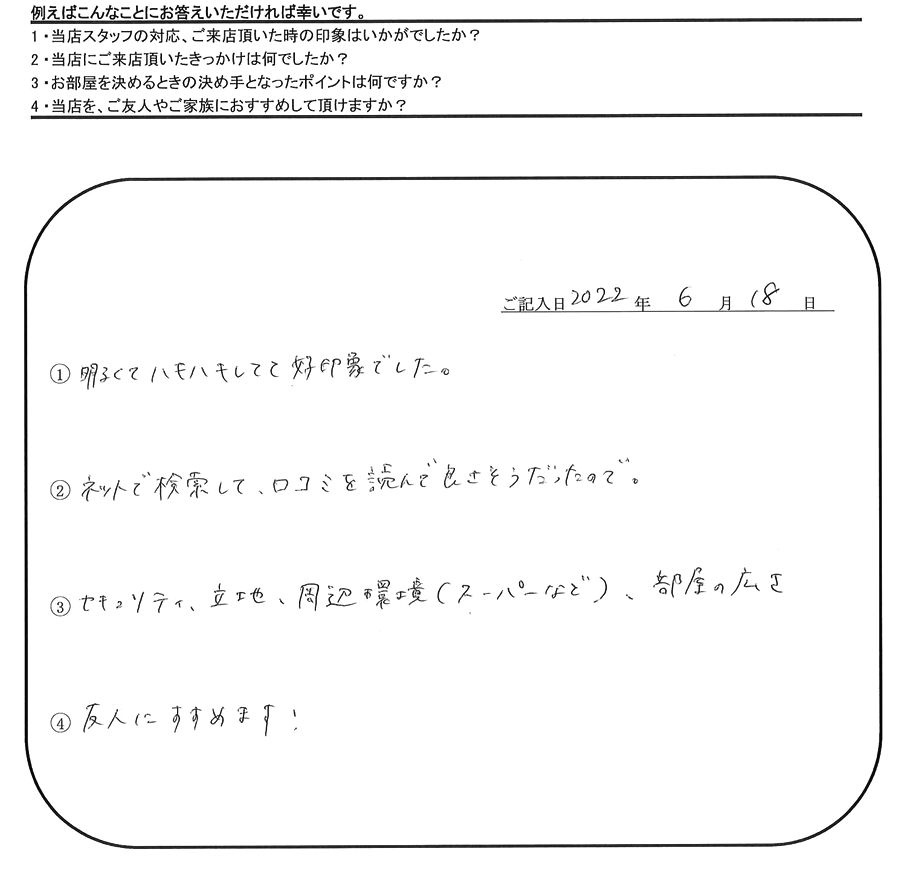 例えばこんなことにお答えいただければ幸いです。
1・当店スタッフの対応、ご来店頂いた時の印象はいかがでしたか？
2・当店にご来店頂いたきっかけは何でしたか？
3・お部屋を決めるときの決め手となったポイントは何ですか？
4・当店を、ご友人やご家族におすすめして頂けますか？
ご記入日2022年 6月 18日
① 明るくてハキハキしてて好印象でした。
② ネットで検索して、口コミを読んで良さそうだったので。
③ セキュリティ、立地、周辺環境(スーパーなど)、部屋の広さ
④ 友人にすすめます!